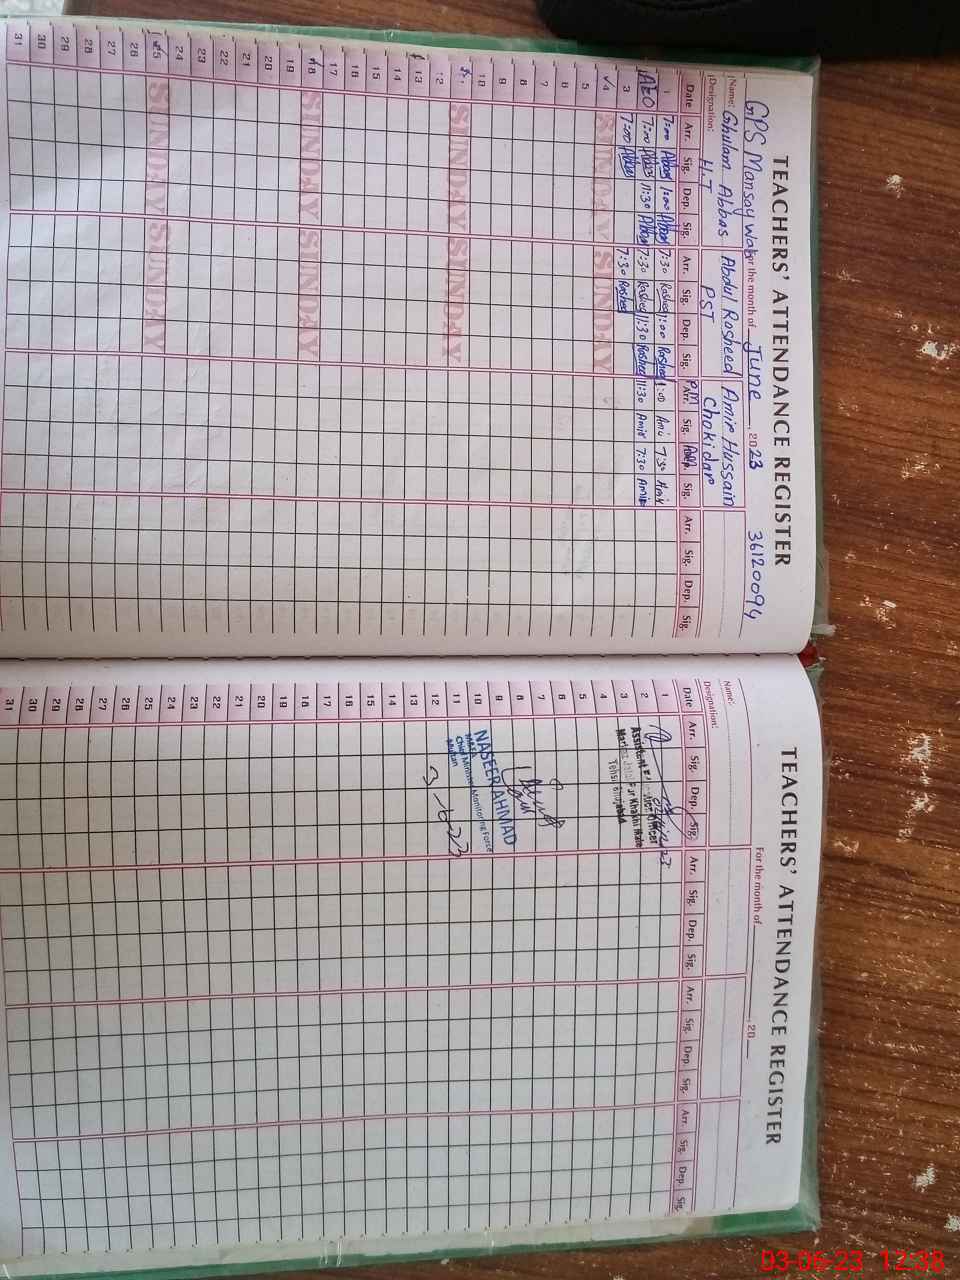 TEACHERS' ATTENDANCE REGISTER
GPS Mansay Wab For the month of June, 2023 36120094
Name: Ghulam Abbas Abdul Rasheed Amir Hussain
Designation: H.T PST Chokidar
Date Arr. Sig. Dep. Sig. Arr. Sig. Dep. Sig. PM Arr. Sig. Dep. Sig. Arr. Sig. Dep. Sig.
1 7:00 Abbas 1:00 Abbas 7:30 Rasheed 1:00 Rasheed 1:00 Amir 7:30 Amir
AEO 7:00 Abbas 11:30 Abbas 7:30 Rasheed 11:30 Rasheed 11:30 Amir 7:30 Amir
3 7:00 Abbas 7:30 Rasheed
4 SUNDAY SUNDAY
5
6
7
8
9
10
SUNDAY SUNDAY
12
13
14
15
16
17
18 SUNDAY SUNDAY
19
20
21
22
23
24
25 SUNDAY SUNDAY
26
27
28
29
30
31
TEACHERS' ATTENDANCE REGISTER
For the month of , 20
Name:
Designation:
Date Arr. Sig. Dep. Sig. Arr. Sig. Dep. Sig. Arr. Sig. Dep. Sig. Arr. Sig. Dep. Sig.
1
2
3
4
5
6
7
8
9
10
11
12
13
14
15
16
17
18
19
20
21
22
23
24
25
26
27
28
29
30
31
Assistant Officer
Markaz Jalal Pur Khakhi Male
Tehsil Shujabad
NASEER AHMAD
MAEA
Chief Minister Monitoring Force
Multan
3-6-23
03-06-23 12:38